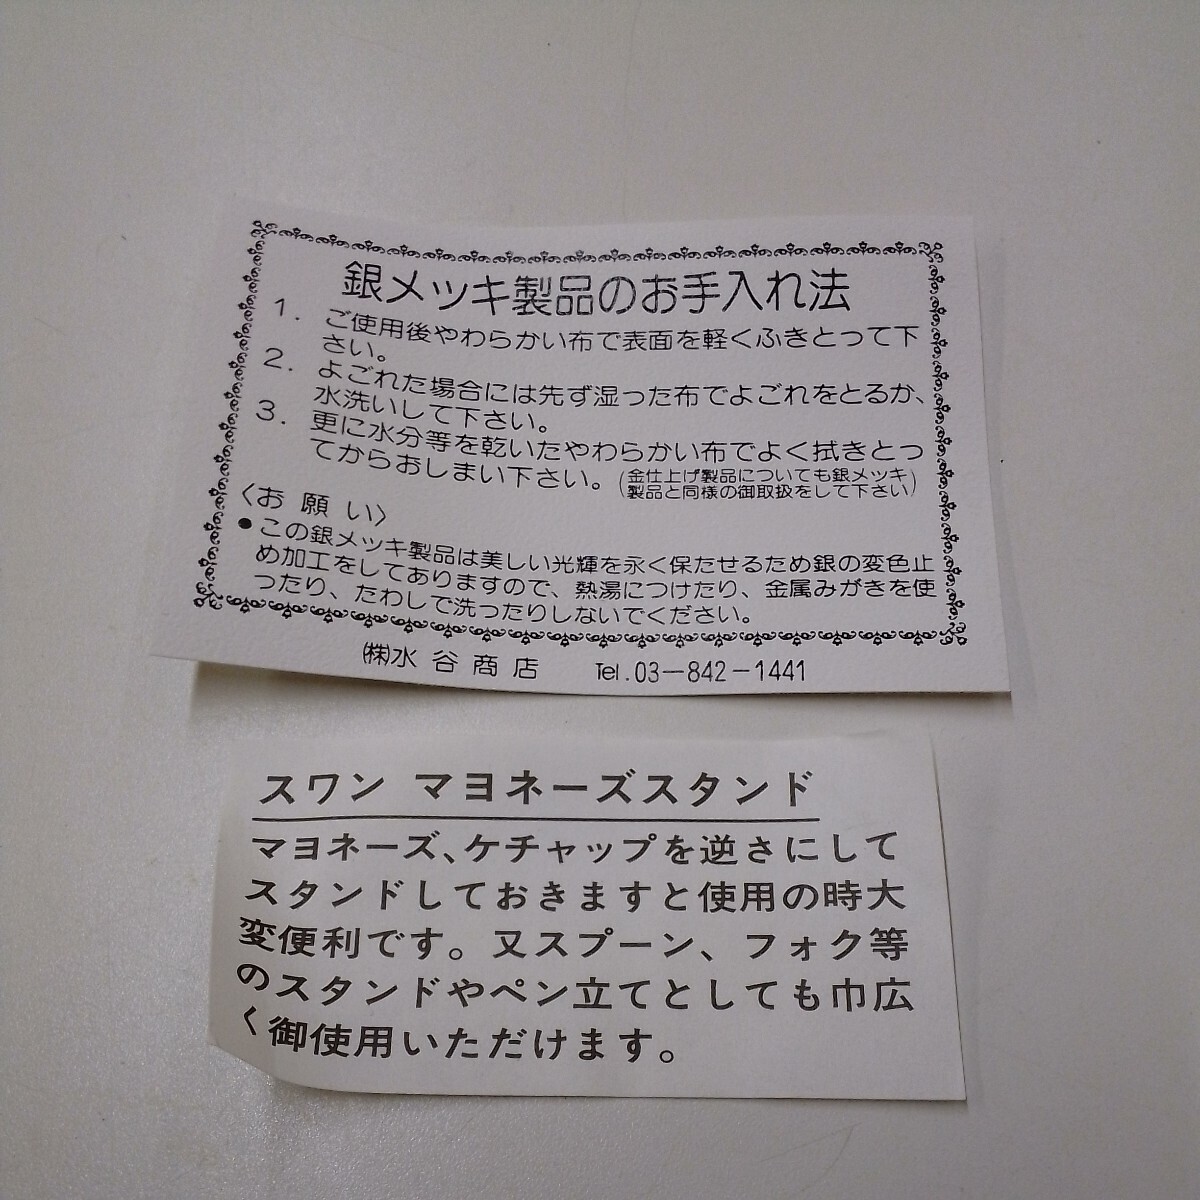 銀メッキ製品のお手入れ法
1. ご使用後やわらかい布で表面を軽くふきとって下
さい。
2. よごれた場合には先ず湿った布でよごれをとるか、
水洗いして下さい。
3. 更に水分等を乾いたやわらかい布でよく拭きとっ
てからおしまい下さい。(金仕上げ製品についても銀メッキ
製品と同様の御取扱をして下さい)
〈お願い〉
●この銀メッキ製品は美しい光輝を永く保たせるため銀の変色止
め加工をしてありますので、熱湯につけたり、金属みがきを使
ったり、たわしで洗ったりしないでください。
㈱水谷商店 Tel.03-842-1441
スワン マヨネーズスタンド
マヨネーズ、ケチャップを逆さにして
スタンドしておきますと使用の時大
変便利です。又スプーン、フォク等
のスタンドやペン立てとしても巾広
く御使用いただけます。